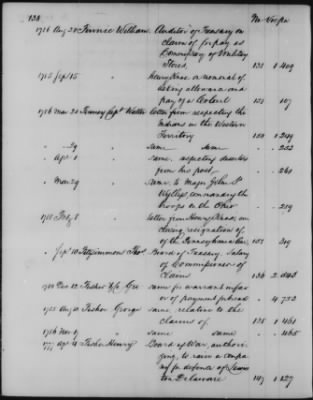 138
No Vo pa
1786 Aug 28 William Auditor of Treasury on
claim of for pay as
Commissary of Military
Stores, 138 1 409
1785 Sep 15 " Henry Knox on renewal of
allowance and
pay of a Colonel 151 1 107
1786 Mar 20 Capt Walter letter from respecting the
Indians in the Western
Territory 150 1 249
" 29 " same same " " 252
" Apr 1 " same, respecting
from his post, " " 261
" Mar 29 " same to Major John P.
Wyllys, commanding the
troops on the Ohio " " 259
1788 Feby 8 " letter from Henry Knox, en
closing resignation of,
of the Pennsylvania 151 319
" Sep 10 Fitzsimmons Thos. Board of Treasury, salary
of Commissioner of
Claim 136 2
Dec 12 Geo same for warrant in favor
of payment for 4
1785 Aug 10 Fisher George same relative to the
claims of 138 1 461
1786 Nov 9 " same same " " 465
Fisher Henry Board of War, authori-
zing, to raise a compa
ny for defence of
ton Delaware 147 1 127